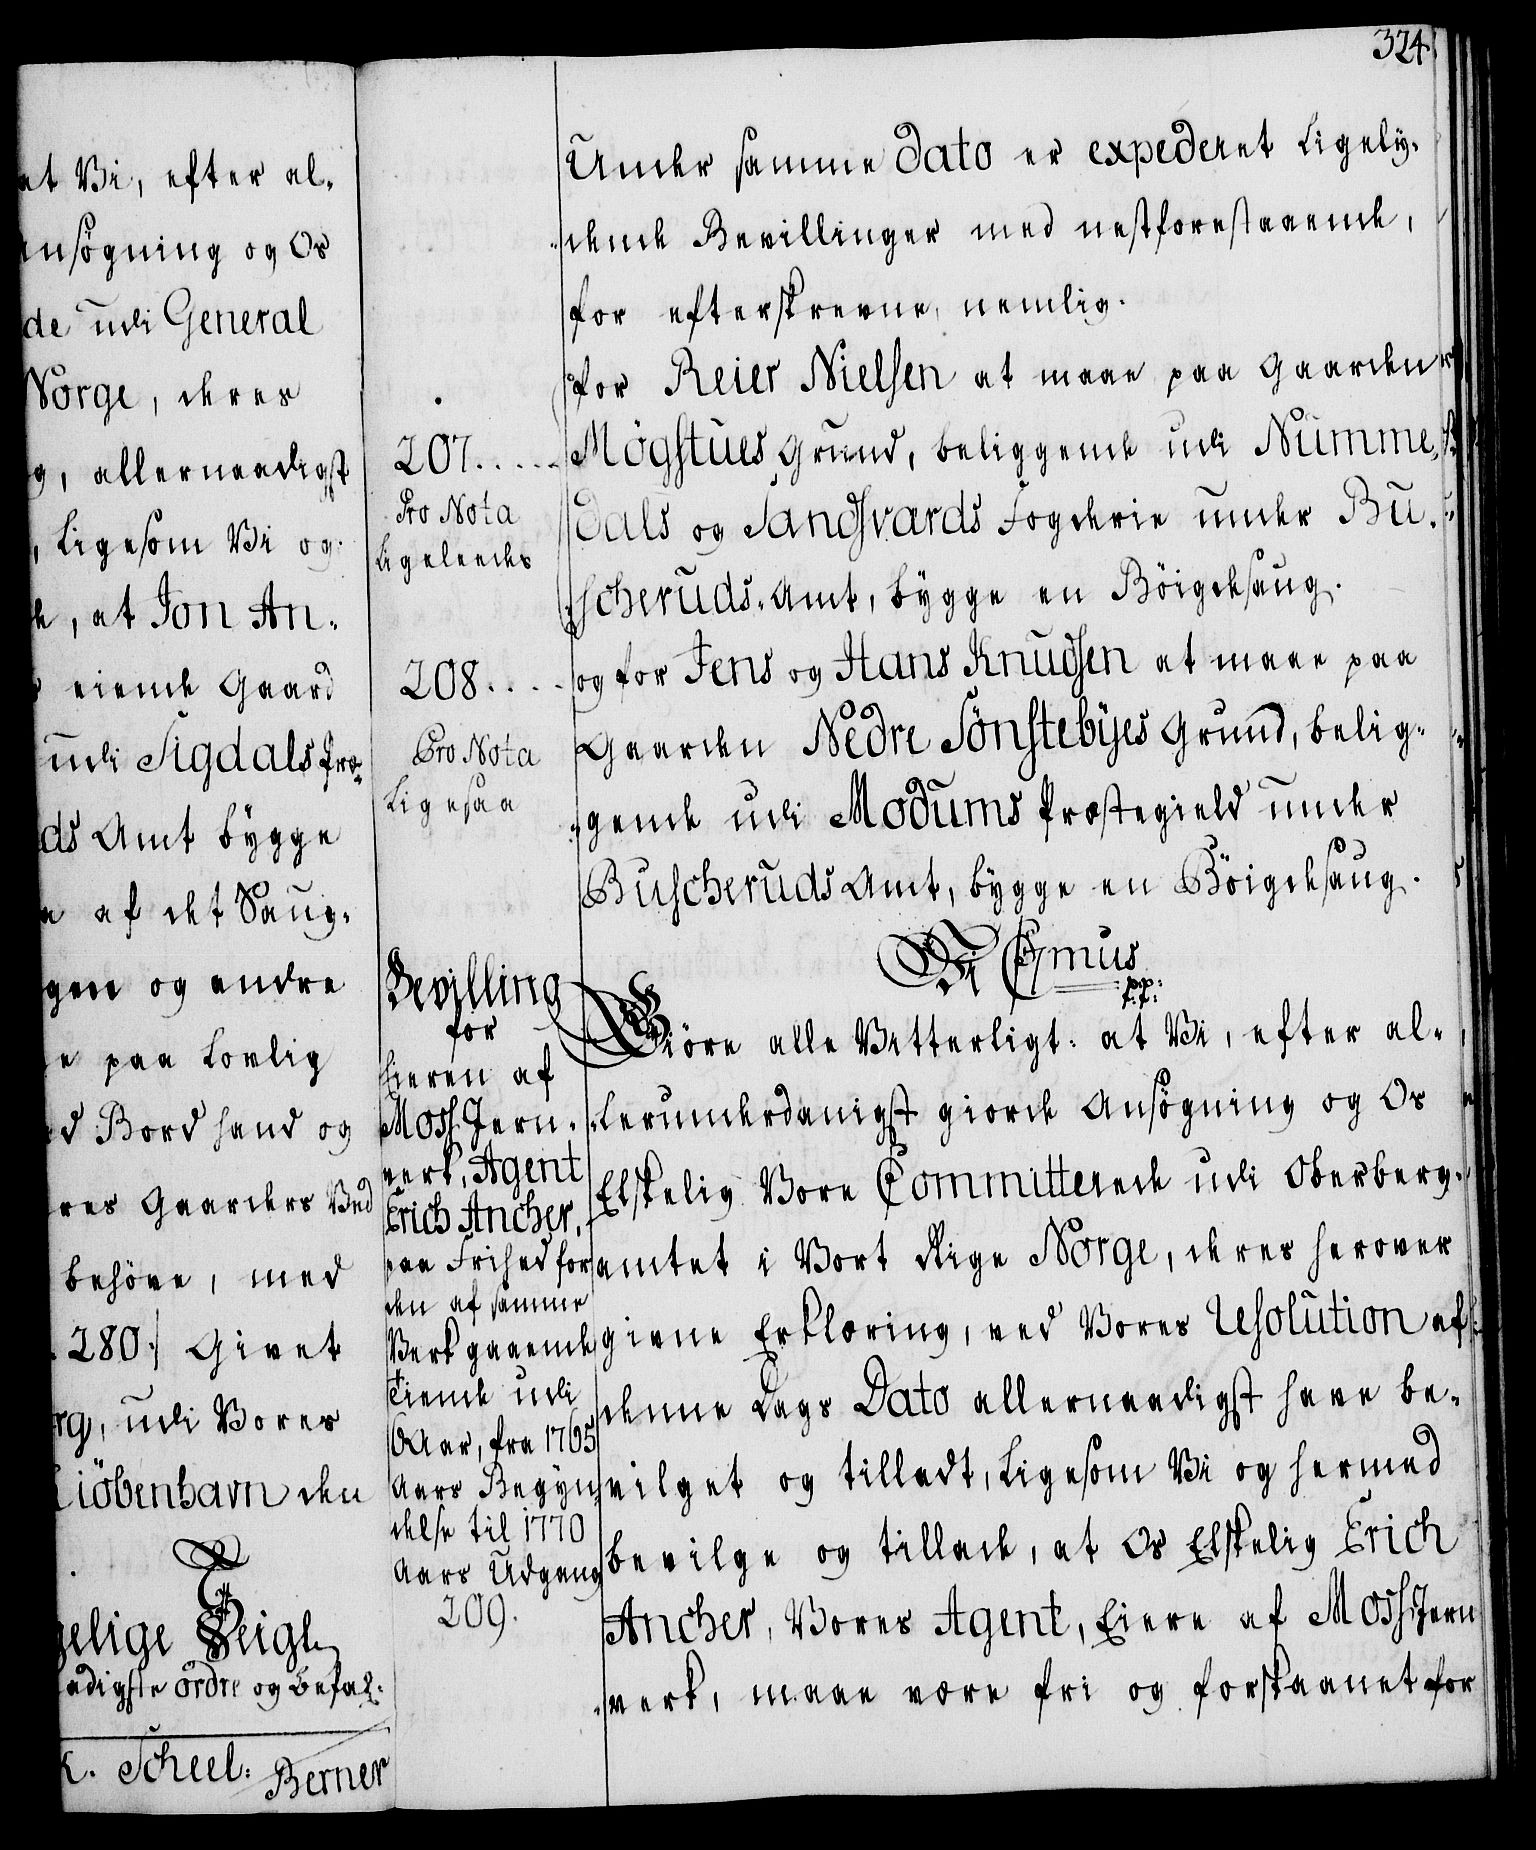 324
at Vi, efter al-
Ansögning og Os
de udi General
Norge, deres
g, allernaadigst
, Ligesom Vi og
de, at Jon An-
s eiende Gaard
udi Sigdals Præ-
ds Amt bygge
a af det Saug-
gen og andre
e paa Lovlig
d Bord hand og
res Gaarders Ved
behöve, med
280./ Givet
rg, udi Vores
Kiöbenhavn den
gelige Seigl.
adigste ordre og Befal:
K. Scheel: Berner
207.....
Pro Nota
Ligeleedes
208....
Pro Nota
Ligesaa
Bevilling
for
Eieren af
Moss Jern-
verk, Agent
Erich Ancher,
paa Frihed for
den af samme
Verk gaaende
Tiende udi
6 Aar, fra 1765
Aars Begyn-
delse til 1770
Aars Udgang
209.
Under samme Dato er expederet Ligely-
dende Bevillinger med nestforestaaende,
for efterskrevne, nemlig.
for Reier Nielsen at maae paa Gaarden
Mögstues Grund, beliggende udi Numme-
dals og Sandsværds Fogderie under Bu-
scheruds Amt, bygge en Böigdesaug.
og for Jens og Hans Knudsen at maae paa
Gaarden Nedre Sönstebÿes Grund, belig-
gende udi Modums Præstegield under
Buscheruds Amt, bygge en Böigdesaug.
Vi C 7mus
p.p:
Giöre alle Vitterligt: at Vi, efter al-
lerunderdanigst giorde Ansögning og Os
Elskelig Vore Committerede udi Oberberg-
amtet i Vort Rige Norge, deres herover
givne Erklæring, ved Vores Resolution af
denne Dags Dato allernaadigst have be-
vilget og tilladt, Ligesom Vi og hermed
bevilge og tillade, at Os Elskelig Erich
Ancher, Vores Agent, Eiere af Moss Jern
verk, maae være fri og forskaanet for